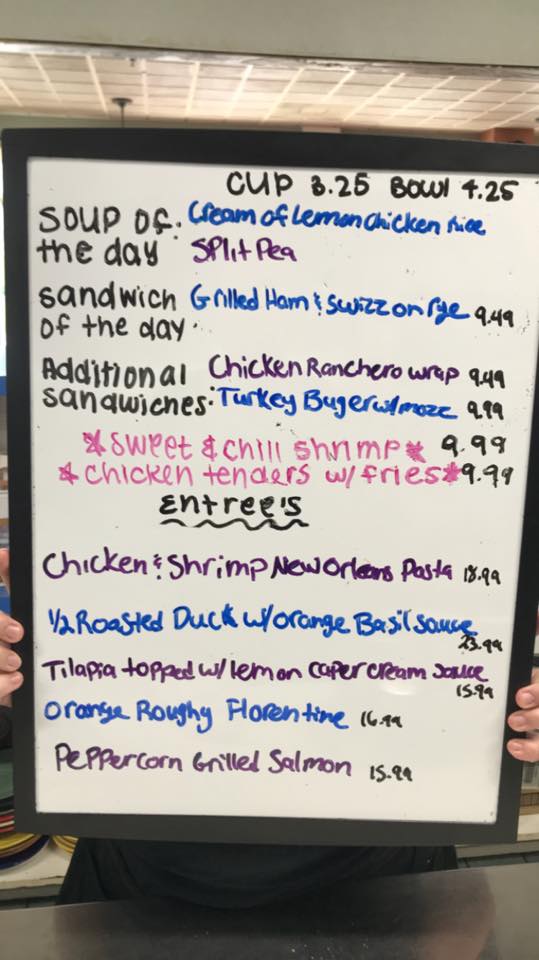 CUP 3.25 Bowl 4.25
Soup of: Cream of Lemon chicken rice
the day Split Pea
Sandwich Grilled Ham & Swizz on rye 9.49
of the day.
Additional Chicken Ranchero wrap 9.49
Sandwiches: Turkey Buger w/mozz 9.99
*Sweet & chili shrimp* 9.99
* chicken tenders w/ fries*9.99
Entree's
Chicken & Shrimp New Orleans Pasta 18.99
1/2 Roasted Duck w/orange Basil sauce
23.99
Tilapia topped w/lemon caper cream sauce
15.99
Orange Roughy Florentine 16.99
Peppercorn Grilled Salmon 15.99